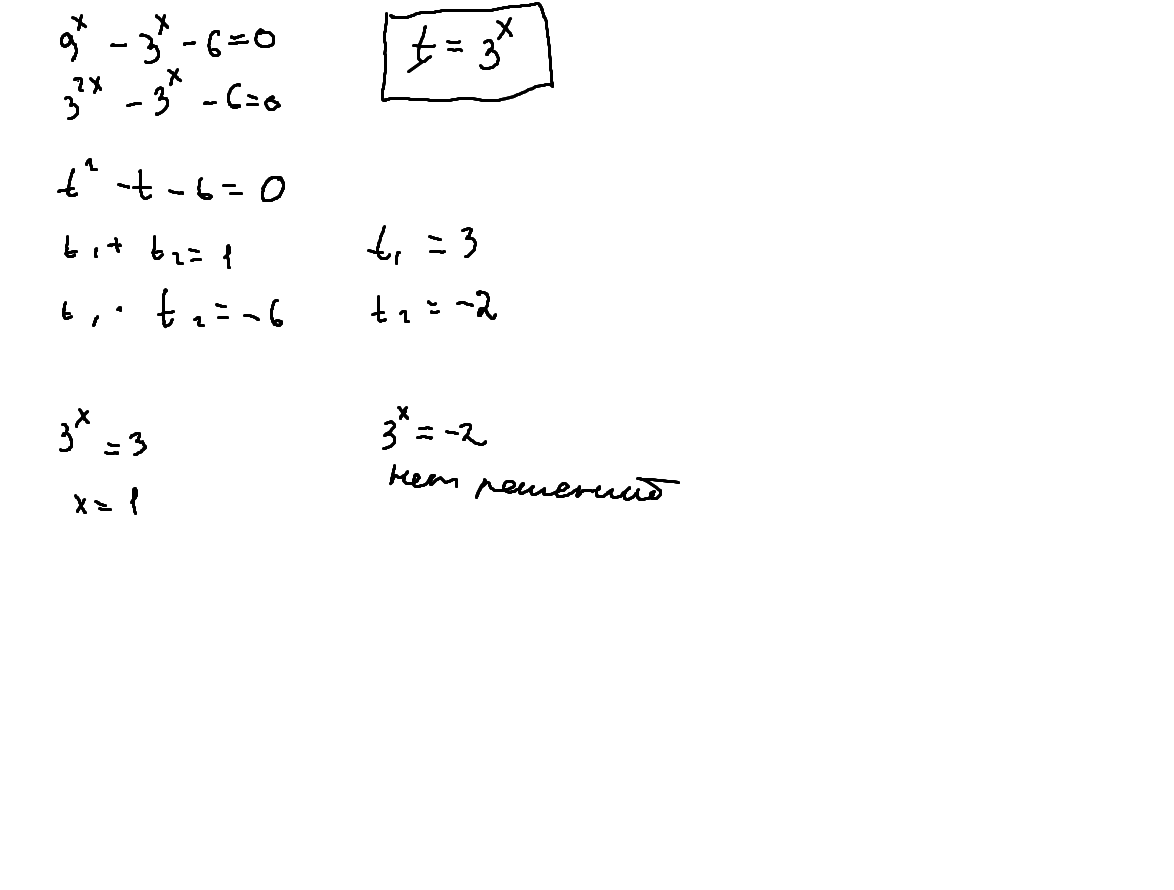 9^x - 3^x - 6 = 0
t = 3^x
3^2x - 3^x - 6 = 0
t^2 - t - 6 = 0
t1 + t2 = 1
t1 = 3
t1 · t2 = -6
t2 = -2
3^x = 3
3^x = -2
x = 1
нет решений